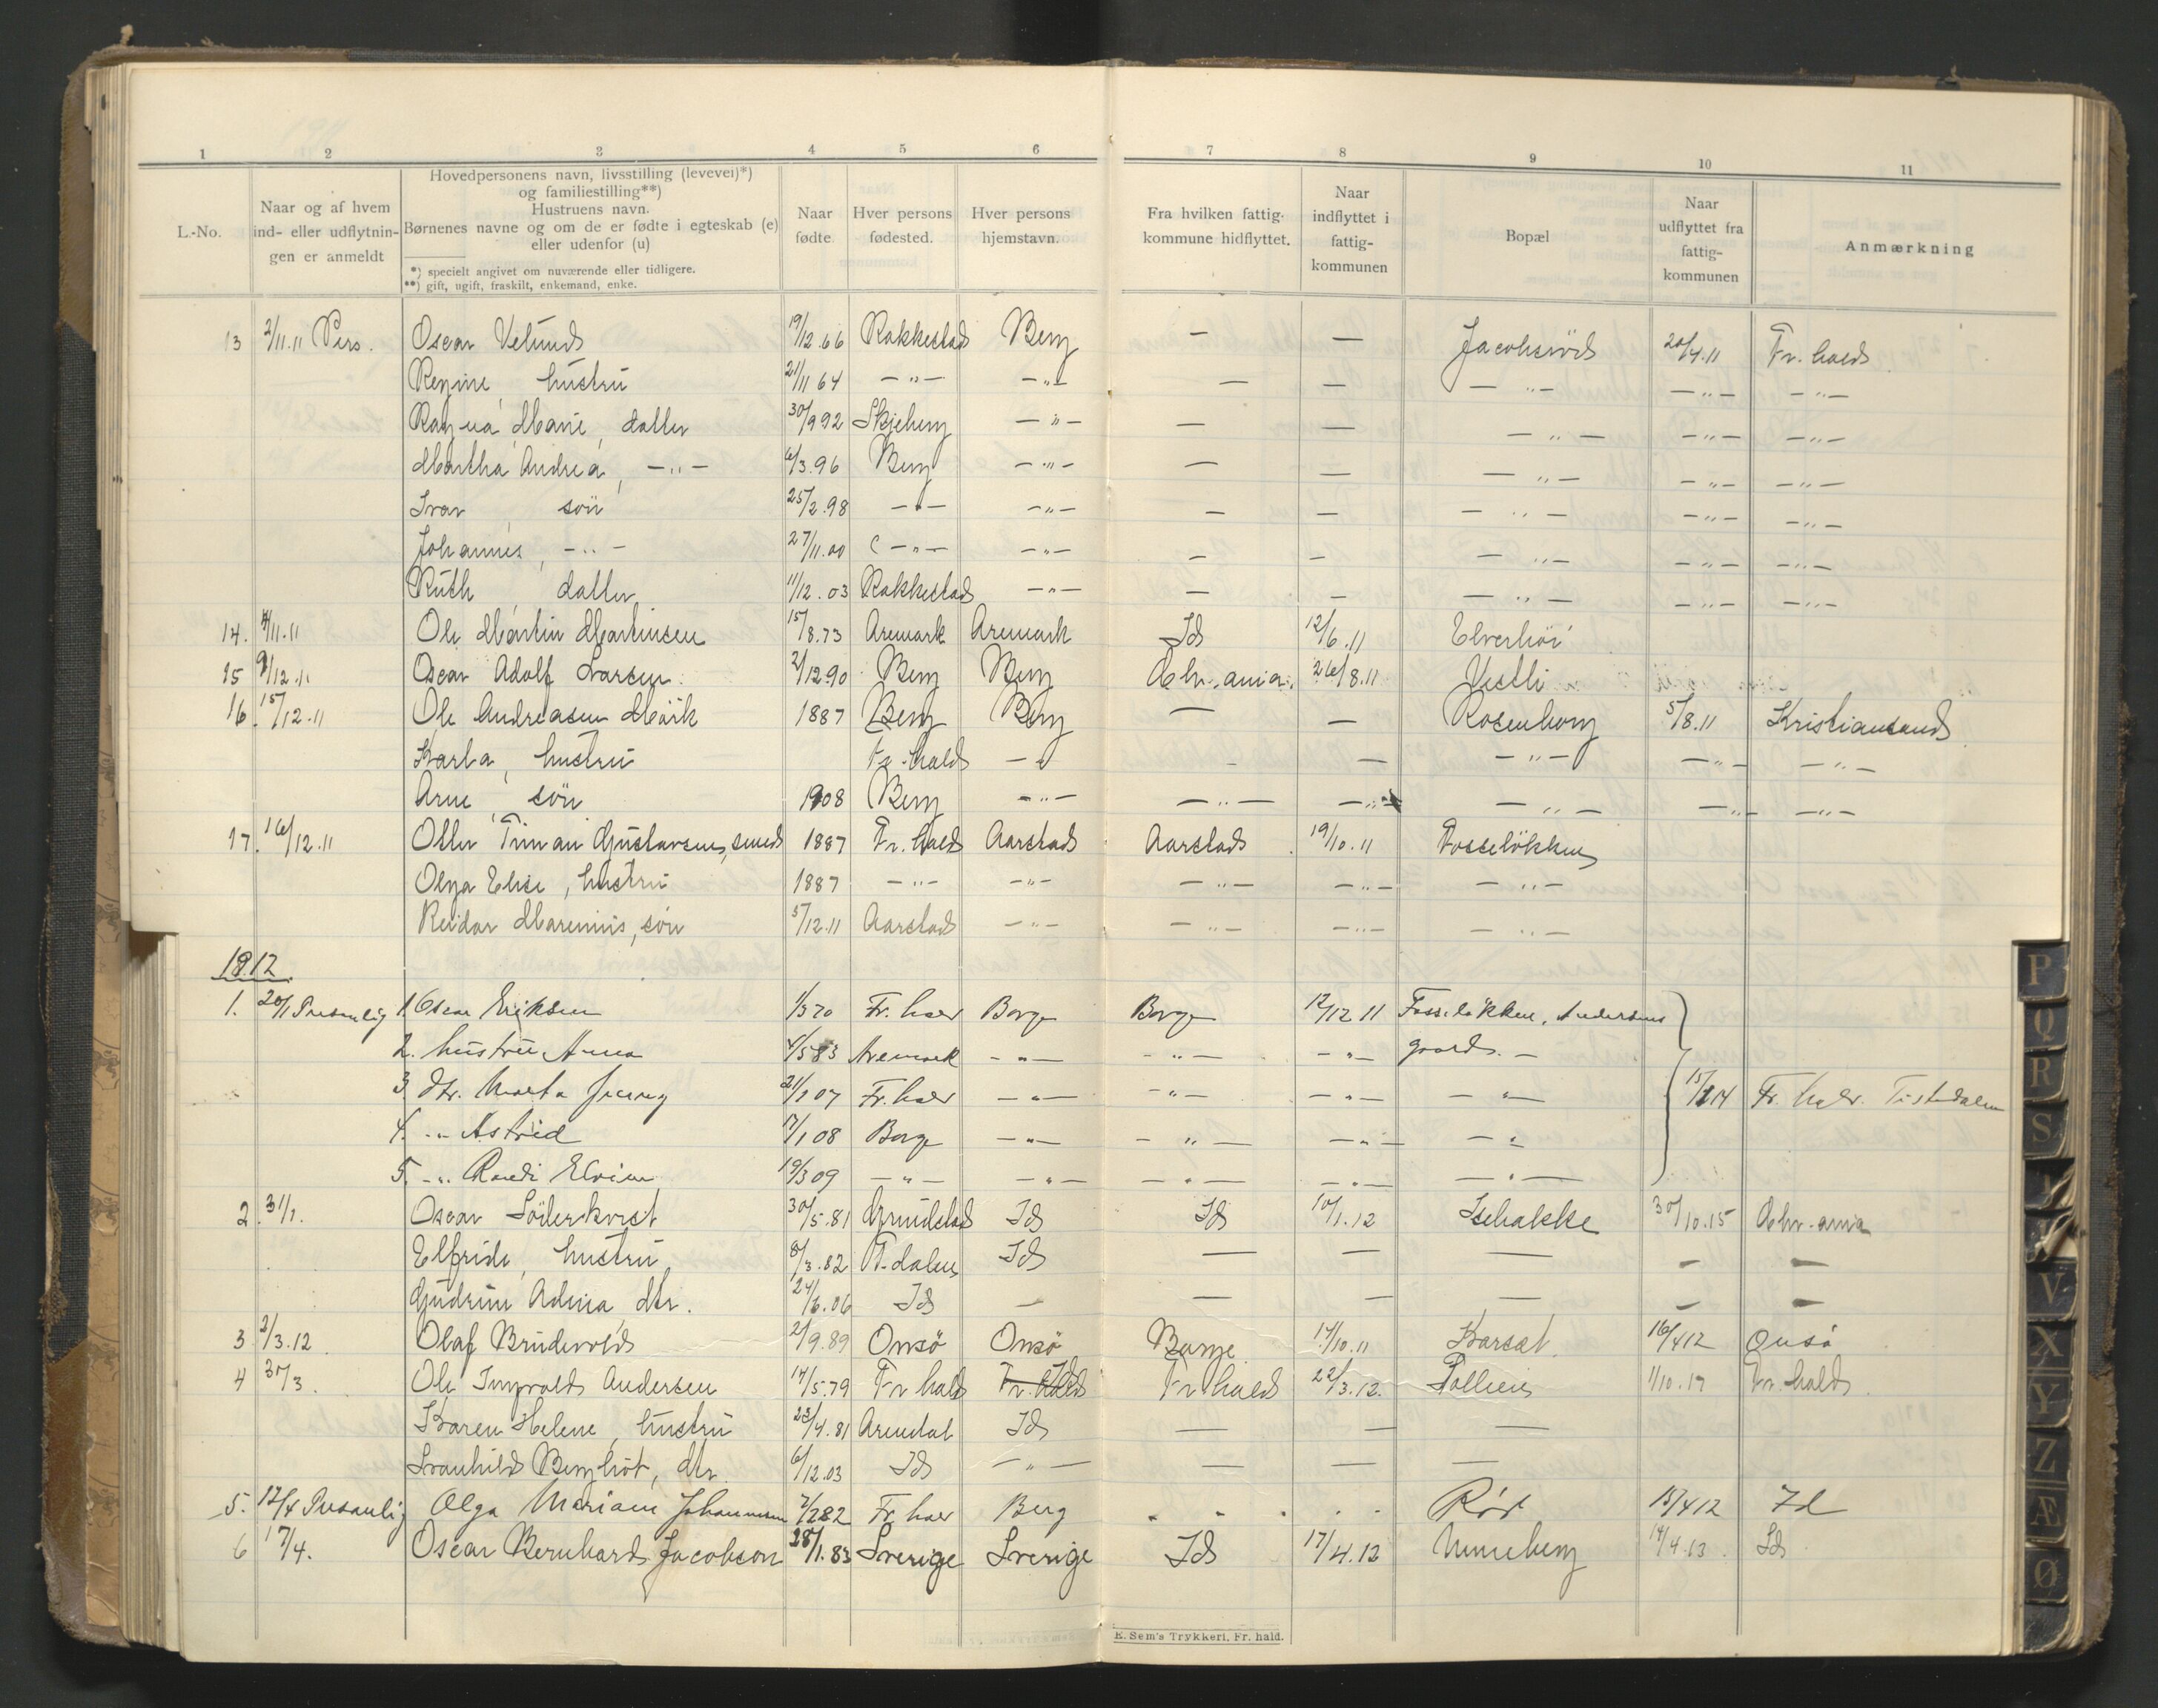 1 2 3 4 5 6 7 8 9 10 11
L.-No.
Naar og af hvem
ind- eller udflytnin-
gen er anmeldt
Hovedpersonens navn, livsstilling (levevei)*)
og familiestilling**)
Hustruens navn.
Børnenes navne og om de er fødte i egteskab (e)
eller udenfor (u)
*) specielt angivet om nuværende eller tidligere.
**) gift, ugift, fraskilt, enkemand, enke.
Naar
fødte
Hver persons
fødested.
Hver persons
hjemstavn.
Fra hvilken fattig-
kommune hidflyttet.
Naar
indflyttet i
fattig-
kommunen
Bopæl
Naar
udflyttet fra
fattig-
kommunen
Anmærkning
13 2/11.11 Pers. Oscar Velund 19/12.66 Rakkestad Berg — — Jacobsröd 20/4.11 Fr.hald
Regine, hustru 21/11 64 —"— —"— — — —"— —"— —"—
Ragna Marie, datter 30/9 92 Skjeberg —"— — — —"— —"— —"—
Martha Andrea, —"— 6/3.96 Berg —"— — — —"— —"— —"—
Ivar sön 25/2.98 —"— —"— — — —"— —"— —"—
Johannes, —"— 27/11.00 —"— —"— — — —"— —"— —"—
Ruth, datter 11/12.03 Rakkestad —"— — — —"— —"— —"—
14. 4/11.11 Ole Martin Martinsen 15/8.73 Aremark Aremark Id 12/6.11 Elverhöi
15 9/12.11 Oscar Adolf Larsen 2/12.90 Berg Berg Chr.ania. 26/8.11 Vestli
16. 15/12.11 Ole Andreasen Mörk 1887 Berg Berg — — Rosenborg 5/8.11 Kristiansand
Karla, hustru Fr.hald —"— — — —"— —"— —"—
Arne, sön 1908 Berg —"— —"— —"— —"— —"— —"—
17. 16/12.11 Otter Timan Gustavsen, smed 1887 Fr.hald Aarstad Aarstad 19/10.11 Fosseløkken
Olga Elise, hustru 1887 —"— —"— —"— —"— —"—
Reidar Marenius, sön 5/12.11 Aarstad —"— —"— —"— —"—
1912.
1. 20/1 Personlig 1. Oscar Eriksen 1/3 70 Fr.hald Borge Borge 12/12 11 Fosseløkken, Andersens
2. hustru Anna 4/5 83 Aremark —"— —"— —"— gaard. —
3. dtr. Marta Jenny 21/1 07 Fr.hald —"— —"— —"— —"— 15/1 14 Fr.hald. Tistedalen
4. —"— Astrid 17/1 08 Borge —"— —"— —"— —"—
5. —"— Randi Elvine 19/3 09 —"— —"— —"— —"— —"—
2. 31/1. Oscar Söderkvist 30/5.81 Grimstad Id Id 10/1.12 Isebakke 30/10.15 Chr.ania
Elfride, hustru 8/3.82 T.dalen Id — — — — —
Gudrun Adina, dtr. 24/6.06 Id — — — — — —
3 2/3.12 Olaf Brudevold 2/9.89 Onsö Onsö Borge 14/10.11 Karset 16/4 12 Onsö
4 30/3. Ole Ingvald Andersen 14/5.79 Fr hald Fr.hald Id Fr hald 22/3.12. Sollien 1/10.17 Fr.hald
Karen Helene, hustru 23/4.81 Arendal Id — — —
Svanhild Bergliot, dtr. 6/12.03 Id —"— — — —
5. 12/4 Personlig Olga Mariane Johannesen 7/2 82 Fr.hald Berg " " " Röd 15/4 12 Id
6 17/4. Oscar Bernhard Jacobson 28/1.83 Sverige Sverige Id 17/4.12 Unneberg 14/4.13 Id
E. Sem's Trykkeri, Fr. hald.
P
Q
R
S
V
X
Y
Z
Æ
Ø